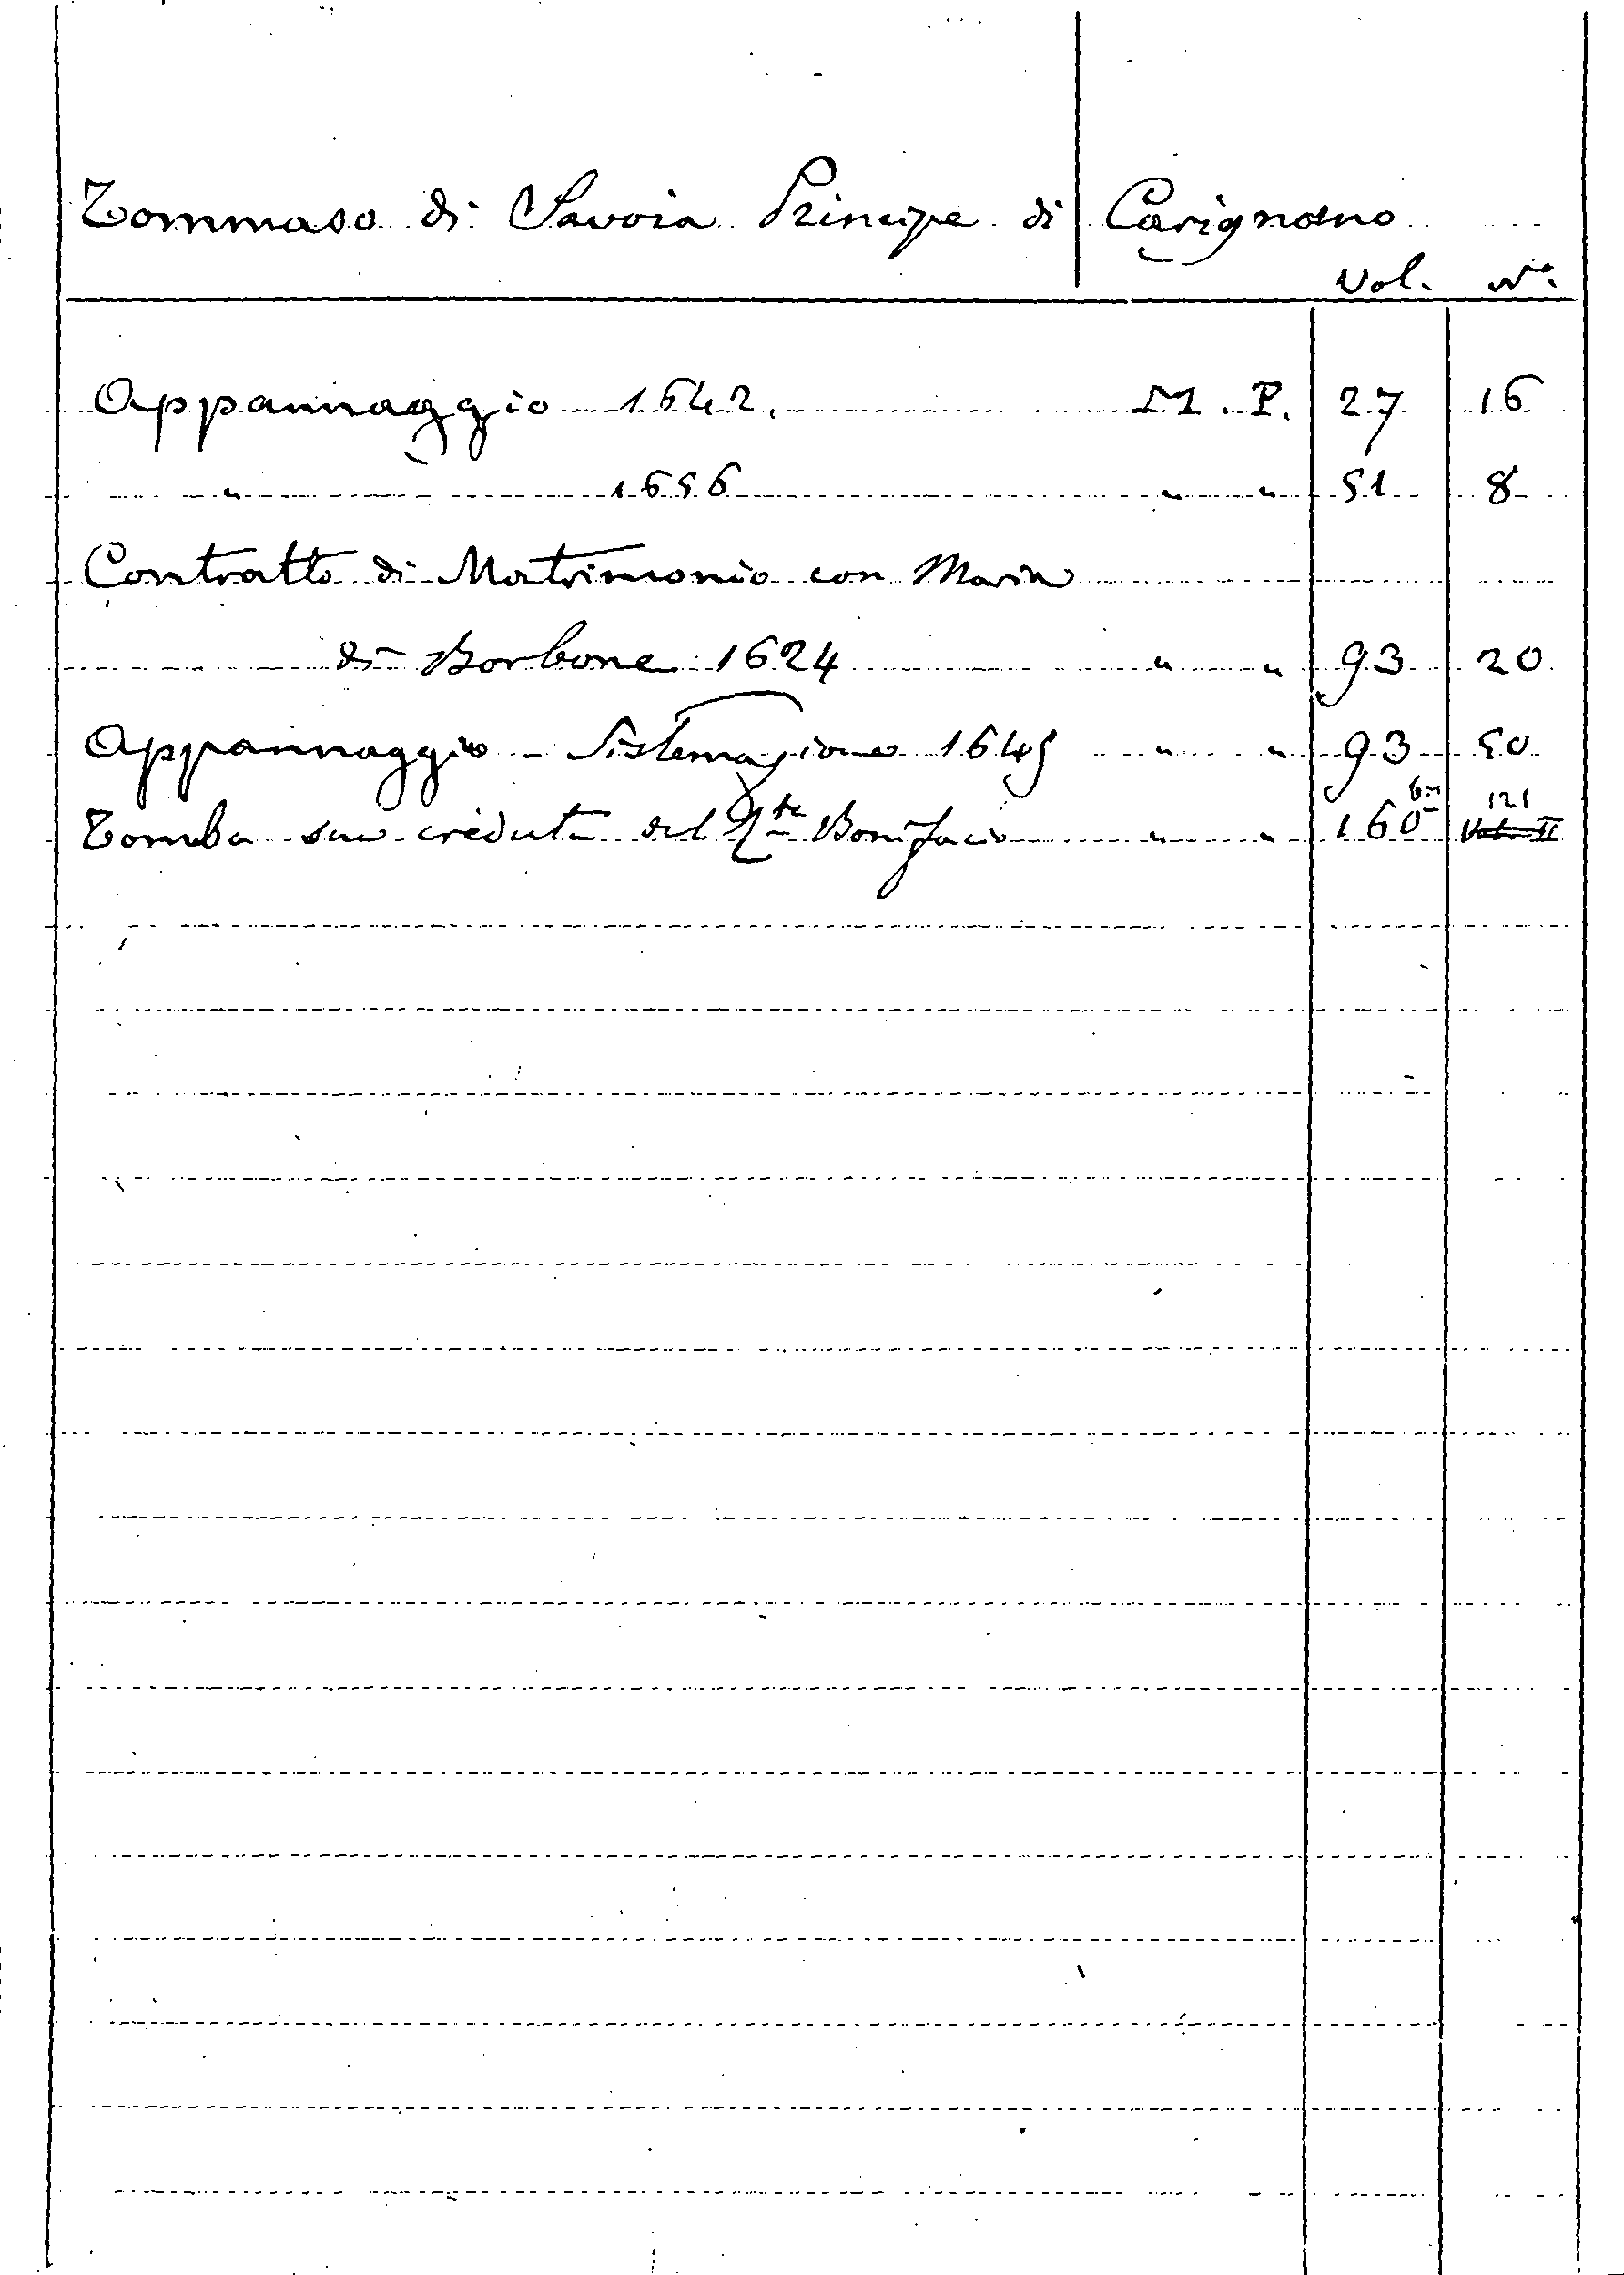 Tommaso di Savoia Principe di Carignano
Vol. N.º
Appannaggio 1642. M. P. 27 16
" 1656 " " 51 8
Contratto di Matrimonio con Maria
di Borbone 1624 " " 93 20
Appannaggio - Sistemazione 1645 " " 93 50
Tomba sua creduta del Bonifacio " " 160 bis 121